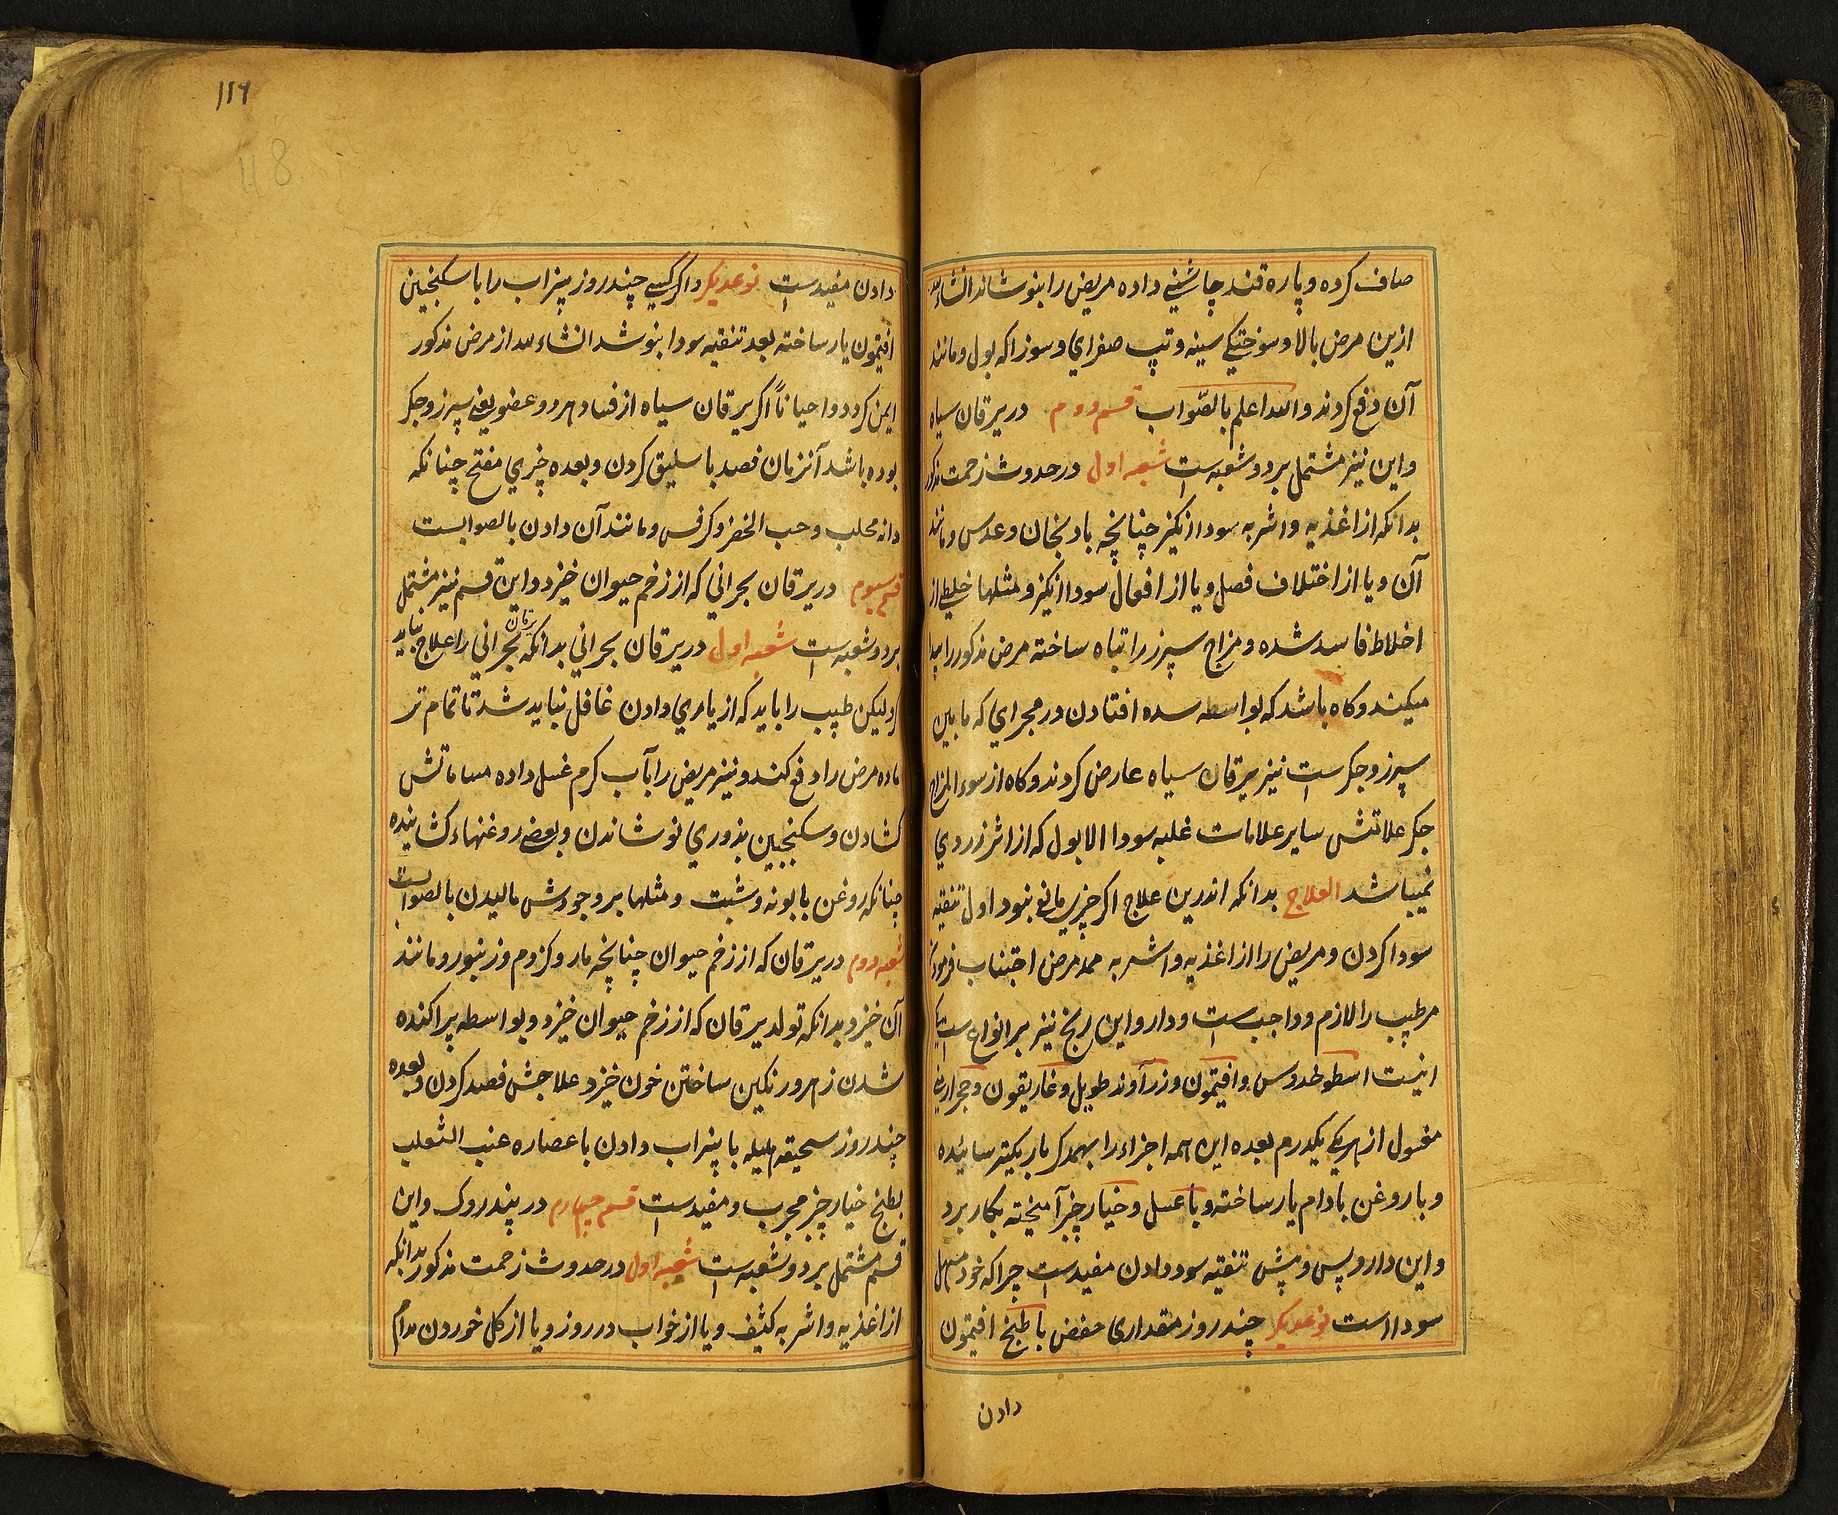 صاف کرده و پاره قند چاشنی داده مریض را بنوشاند انشاءلله
ازین مرض بالا و سوختکی سینه و تپ صفرای و سوزاکه بول و مانند
آن دفع کردند والله اعلم بالصواب قسم دوم در یرقان سیاه
و این نیز مشتمل بر دو شعبه است شعبه اول در حدوث زحمت مذکور
بدانکه از اغذیه و اشربه سودا انکیز چنانچه بادنجان و عدس و مانند
آن و یا از اختلاف فصل و یا از افعال سودا انکیز و مثلها خلیط از
اخلاط فاسد شده و مزاج سپرز را تباه ساخته مرض مذکور را پیدا
میکند و کاه باشد که بواسطه سده افتادن در مجرای که مابین
سپرز و جکر است نیز یرقان سیاه عارض کردند و کاه از سوء المزاج
جکر علاتش سایر علامات غلبه سودا الا بول که از اثر زردی
نمیباشد العلاج بدانکه اندرین علاج اکر چیزی مانع نبود اول تنقیه
سودا کردن و مریض را از اغذیه و اشربه ممد مرض اجتناب فرمودن
مر طبیب را لازم و واجبست و دارو این رنج نیز بر انواع است یکی
اینست اسطوخدوس و افتیمون و زرآوند طویل و غاریقون و حجر ارمنی
مغسول از هریکی یکدرم بعده این همه اجزاء را بهمدکر باریکتر سائیده
و با روغن بادام یار ساخته و با عسل و خیارچنبر آمیخته بکار برد
و این دارو پس و پیش تنقیه سودا دادن مفید است چرا که خود مسهل
سودا است نوعدیکر چند روز مقداری حضض با طبخ افتیمون
دادن
۱۱۶
118
دادن مفید است نوعدیکر و اکر کسی چند روز پنیراب را با سکنجبین
افتیمون یار ساخته بعد تنقیه سودا بنوشد انشاءلله از مرض مذکور
ایمن کردد و احیاناً اکر یرقان سیاه از فساد هر دو عضو یعنی سپرز و جکر
بوده باشد آنزمان فصد باسلیق کردن و بعده چیزی مفتح چنانکه
دانه محلب و حب الخضر و کرفس و مانند آن دادن بالصوابست
قسم سیوم در یرقان بحرانی که از زخم حیوان خیزد و این قسم نیز مشتمل
بر دو شعبه است شعبه اول در یرقان بحرانی بدانکه یرقان بحرانی را علاج نباید
کرد لیکن طبیب را باید که از یاری دادن غافل نباید شد تا تمام تر
ماده مرض را دفع کند و نیز مریض را بآب کرم غسل داده مساماتش
کشادن و سکنجبین بذوری نوشاندن و بعضی روغنهاء کشاینده
چنانکه روغن بابونه و شبت و مثلها بر وجودش مالیدن بالصوابست
شعبه دوم در یرقان که از زخم حیوان چنانچه مار و کژدم و زنبور و مانند
آن خیزد بدانکه تولد یرقان که از زخم حیوان خیزد و بواسطه پراکنده
شدن زهر و رنکین ساختن خون خیزد علاجش فصد کردن و بعده
چند روز سحیقه هلیله با پنیراب دادن با عصاره عنب الثعلب
بطبخ خیارچنبر مجرب و مفید است قسم چهارم در پندروک و این
قسم مشتمل بر دو شعبه است شعبه اول در حدوث زحمت مذکور بدانکه
از اغذیه و اشربه کثیف و یا از خواب در روز و یا از کل خوردن مدام